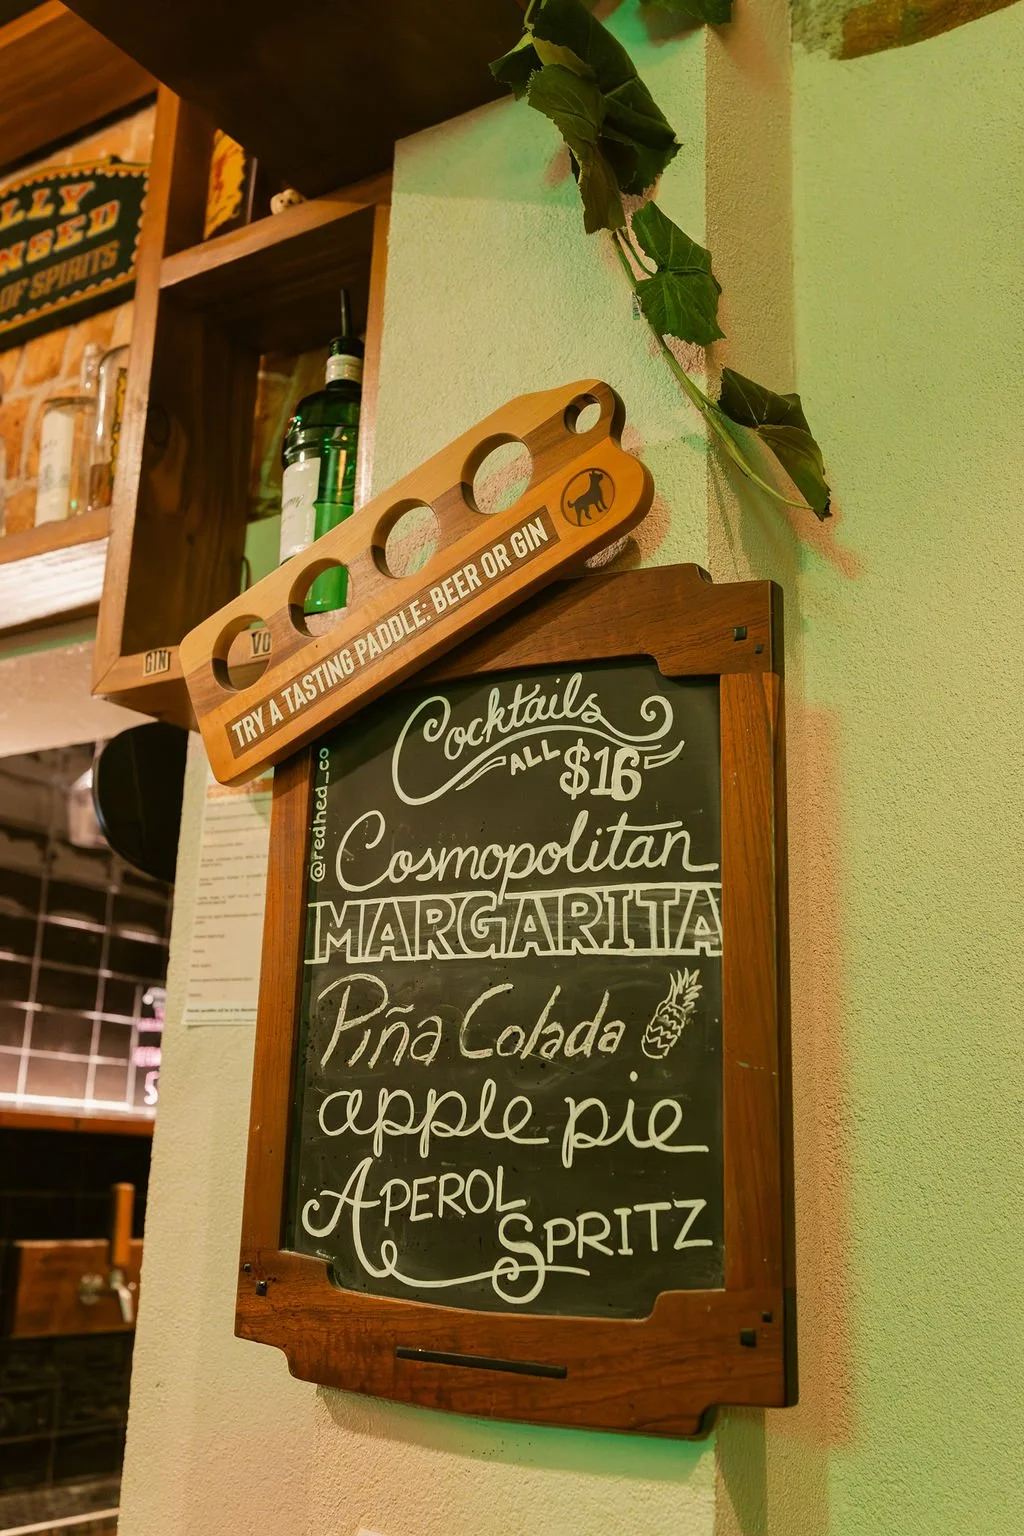 LLY
NSED
OF SPIRITS
GIN
VO
TRY A TASTING PADDLE: BEER OR GIN
Cocktails
ALL $16
@redhed_co
Cosmopolitan
MARGARITA
Piña Colada
apple pie
APEROL
SPRITZ